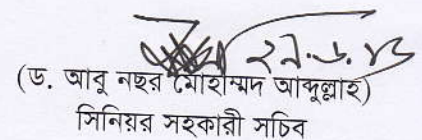 ২৭.৬.১৩
(ড. আবু নছর মোহাম্মদ আব্দুল্লাহ)
সিনিয়র সহকারী সচিব